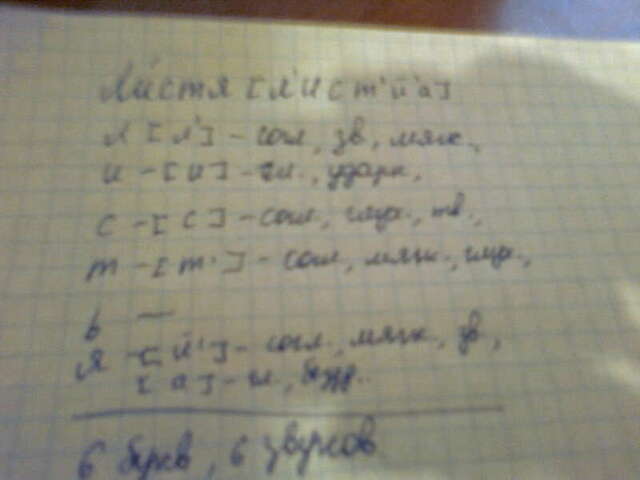 Листья [л'ист'й'а]
л [л'] - согл, зв, мягк.,
и - [и] - гл., ударн,
с - [с] - согл, глух., тв.,
т - [т'] - согл, мягк., глух.,
ь —
я - [й'] - согл., мягк., зв,
[а] - гл., безуд.
6 букв, 6 звуков